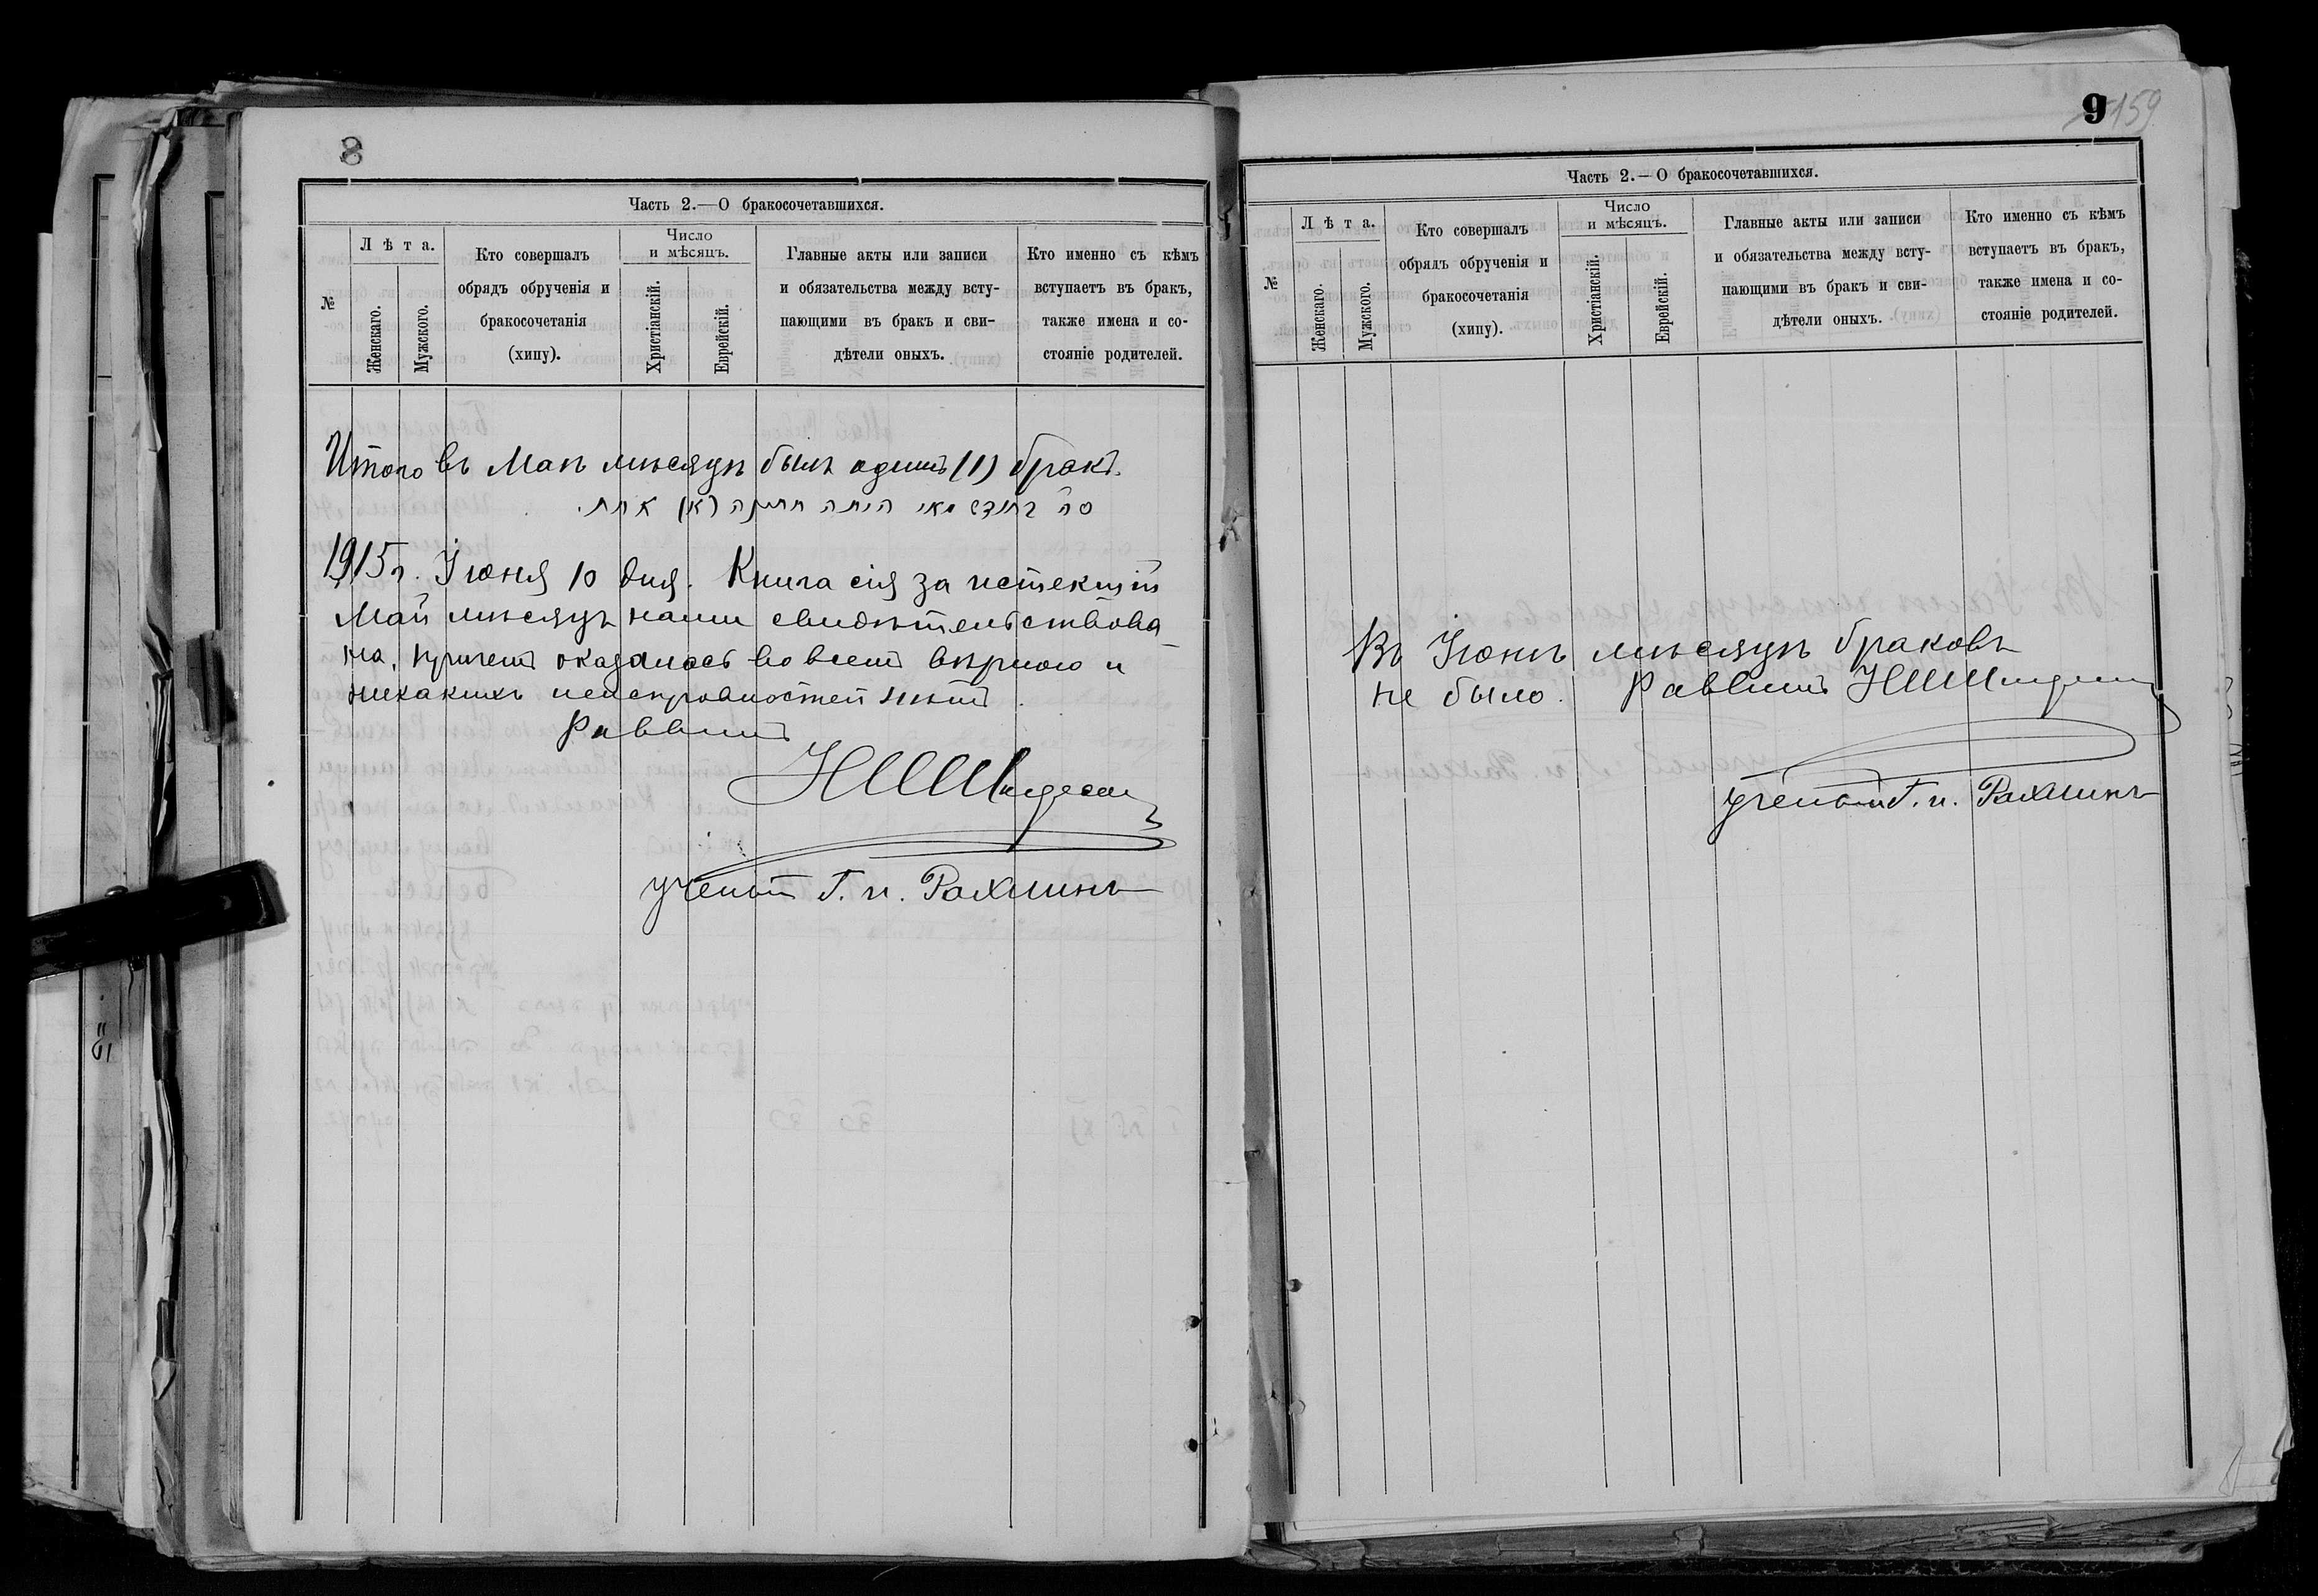 8
Часть 2.—О бракосочетавшихся.
№
Лѣта.
Женскаго.
Мужского.
Кто совершалъ
обрядъ обрученія и
бракосочетанія
(хипу).
Число
и мѣсяцъ.
Христіанскій.
Еврейскій.
Главные акты или записи
и обязательства между всту-
пающими въ бракъ и сви-
дѣтели оныхъ.
Кто именно съ кѣмъ
вступаетъ въ бракъ,
также имена и со-
стояніе родителей.
Итого въ Маѣ мѣсяцѣ былъ одинъ (1) бракъ.
1915 г. Іюня 10 дня. Книга сія за истекшій
Май мѣсяцъ нами свидѣтельствова-
на, причемъ оказалась во всемъ вѣрною и
никакихъ неисправностей нѣтъ.
Раввинъ
ученый Г. и. Рахлинъ
9
159
Часть 2.—О бракосочетавшихся.
№
Лѣта.
Женскаго.
Мужского.
Кто совершалъ
обрядъ обрученія и
бракосочетанія
(хипу).
Число
и мѣсяцъ.
Христіанскій.
Еврейскій.
Главные акты или записи
и обязательства между всту-
пающими въ бракъ и сви-
дѣтели оныхъ.
Кто именно съ кѣмъ
вступаетъ въ бракъ,
также имена и со-
стояніе родителей.
Въ Іюнѣ мѣсяцѣ браковъ
не было. Раввинъ
ученый Г. и. Рахлинъ